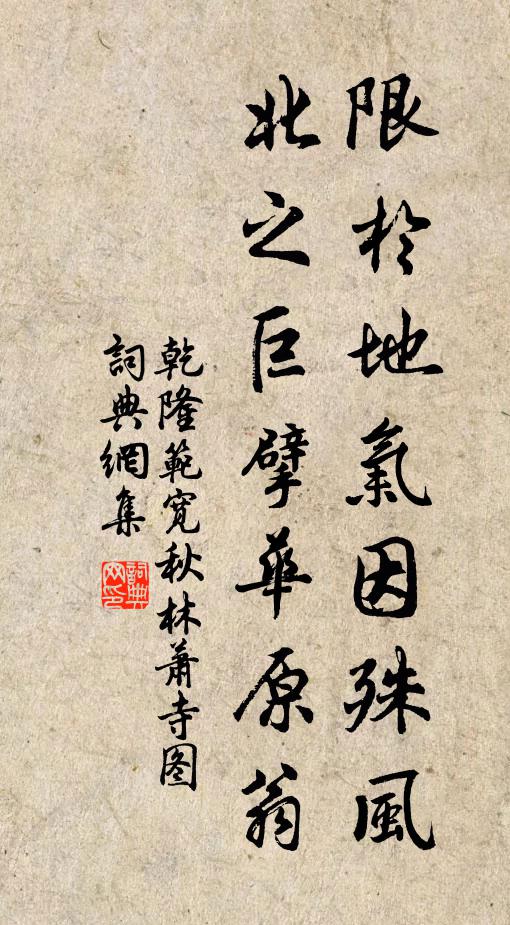 限於地氣因殊風
北之巨擘華原翁
乾隆範寬秋林蕭寺图
詞典網集
詞典
网印